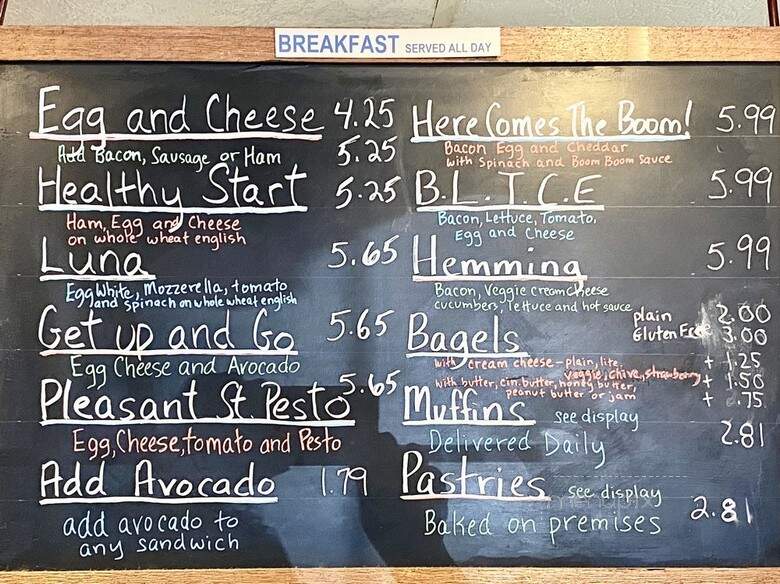 BREAKFAST SERVED ALL DAY
Egg and Cheese 4.25
Add Bacon, Sausage or Ham 5.25
Healthy Start 5.25
Ham, Egg and Cheese
on whole wheat english
Luna 5.65
Egg White, Mozzerella, tomato
and spinach on whole wheat english
Get up and Go 5.65
Egg Cheese and Avocado
Pleasant St. Pesto 5.65
Egg, Cheese, tomato and Pesto
Add Avocado 1.79
add avocado to
any sandwich
Here Comes The Boom! 5.99
Bacon Egg and Cheddar
with Spinach and Boom Boom Sauce
B.L.T.C.E 5.99
Bacon, Lettuce, Tomato,
Egg and Cheese
Hemming 5.99
Bacon, Veggie cream cheese
cucumbers, lettuce and hot sauce
plain 2.00
Bagels Gluten Free 3.00
with cream cheese - plain, lite, + 1.25
veggie, chive, strawberry + 1.50
with butter, cin. butter, honey butter,
peanut butter or jam + .75
Muffins see display
Delivered Daily 2.81
Pastries see display
Baked on premises 2.81